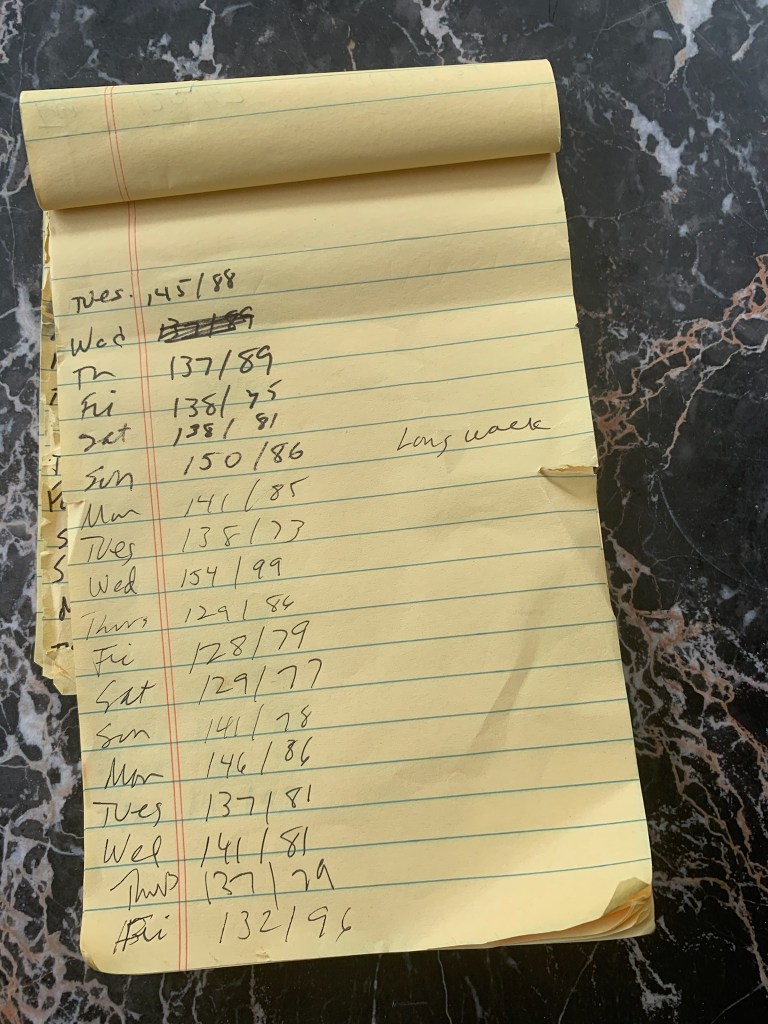 Tues. 145/88
Wed
Th 137/89
Fri 138/75
Sat 138/81
Sun 150/86 Long walk
Mon 141/85
Tues 138/73
Wed 154/99
Thurs 129/86
Fri 128/79
Sat 129/77
Sun 141/78
Mon 146/86
Tues 137/81
Wed 141/81
Thurs 137/79
Fri 132/96